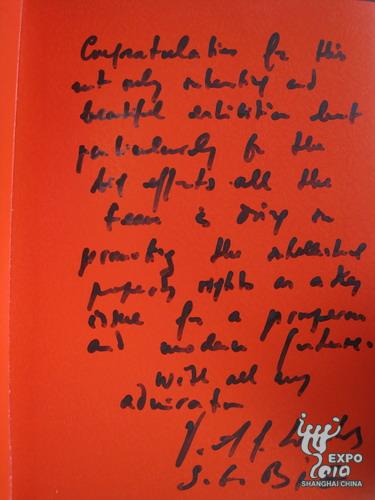 Congratulations for this
not only interesting and
beautiful exhibition but
particularly for the
big efforts all the
team is doing in
promoting the intellectual
property rights as a key
issue for a prosperous
and modern future.
With all my
admiration
EXPO
2010
SHANGHAI CHINA